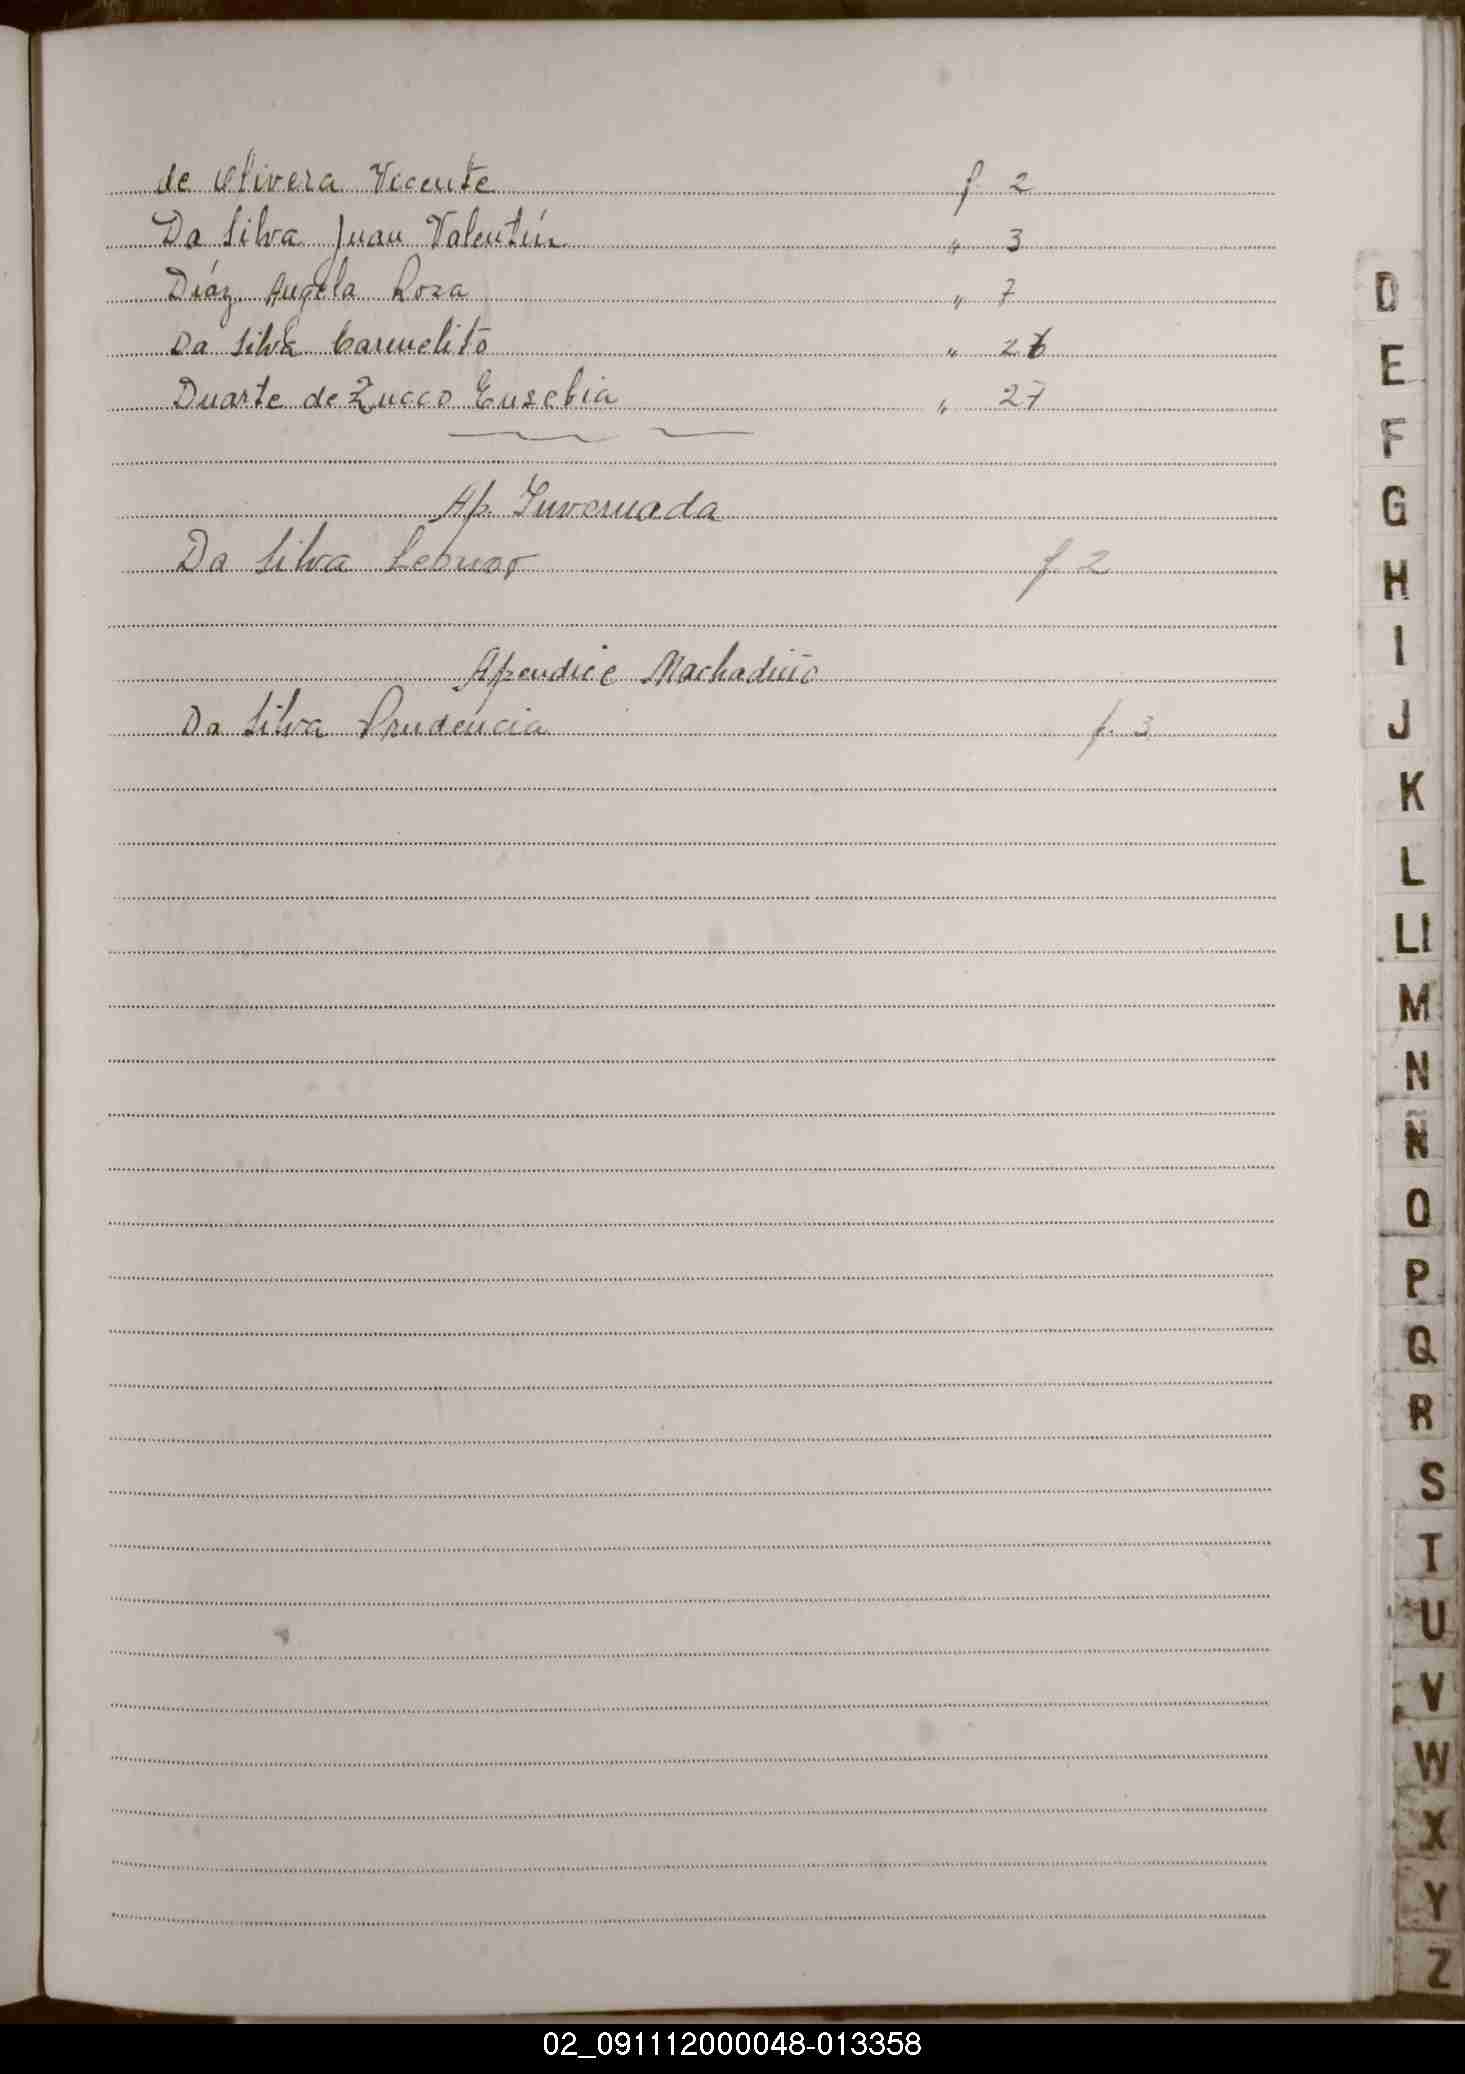 de Olivera Vicente f. 2
Da Silva Juan Valentín " 3
Díaz Angela Rosa " 7
Da Silva Carmelito " 26
Duarte de Zucco Eusebia " 27
Ap. Invernada
Da Silva Leonor f. 2
Apendice Machadiño
Da Silva Prudencia f. 3
D
E
F
G
H
I
J
K
L
Ll
M
N
Ñ
O
P
Q
R
S
T
U
V
W
X
Y
Z
02_091112000048-013358